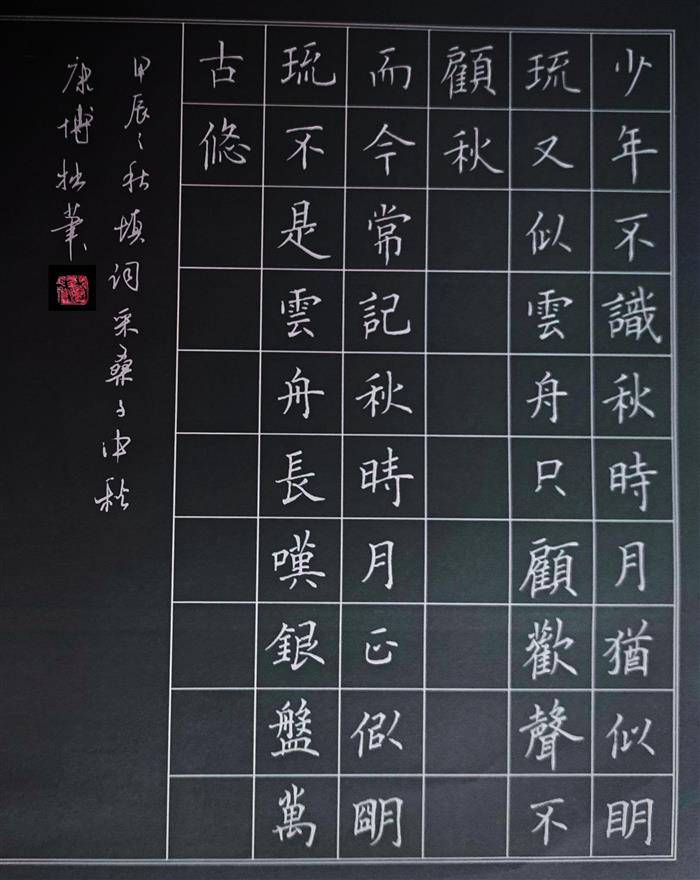 少年不識秋時月猶似眀
琉又似雲舟只顧歡聲不
顧秋
而今常記秋時月正似朙
琉不是雲舟長嘆銀盤萬
古悠
甲辰之秋填词采桑子中秋
康博拙筆